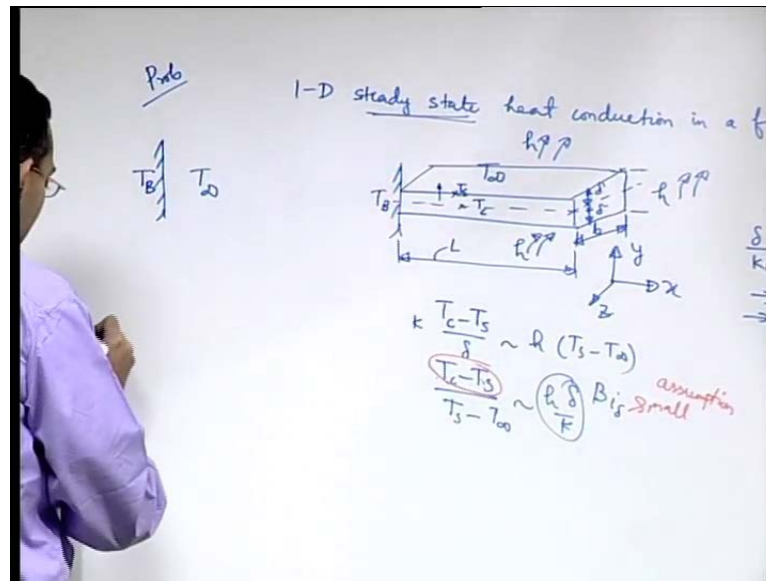 Prob
1-D steady state heat conduction in a f
T_B T_∞
h
T_∞
T_B
T_s
T_c
δ
δ
h
b
h
L
y
x
z
δ
k
k (T_c - T_s)/δ ~ h (T_s - T_∞)
(T_c - T_s)/(T_s - T_∞) ~ hδ/k Bi_δ small
assumption